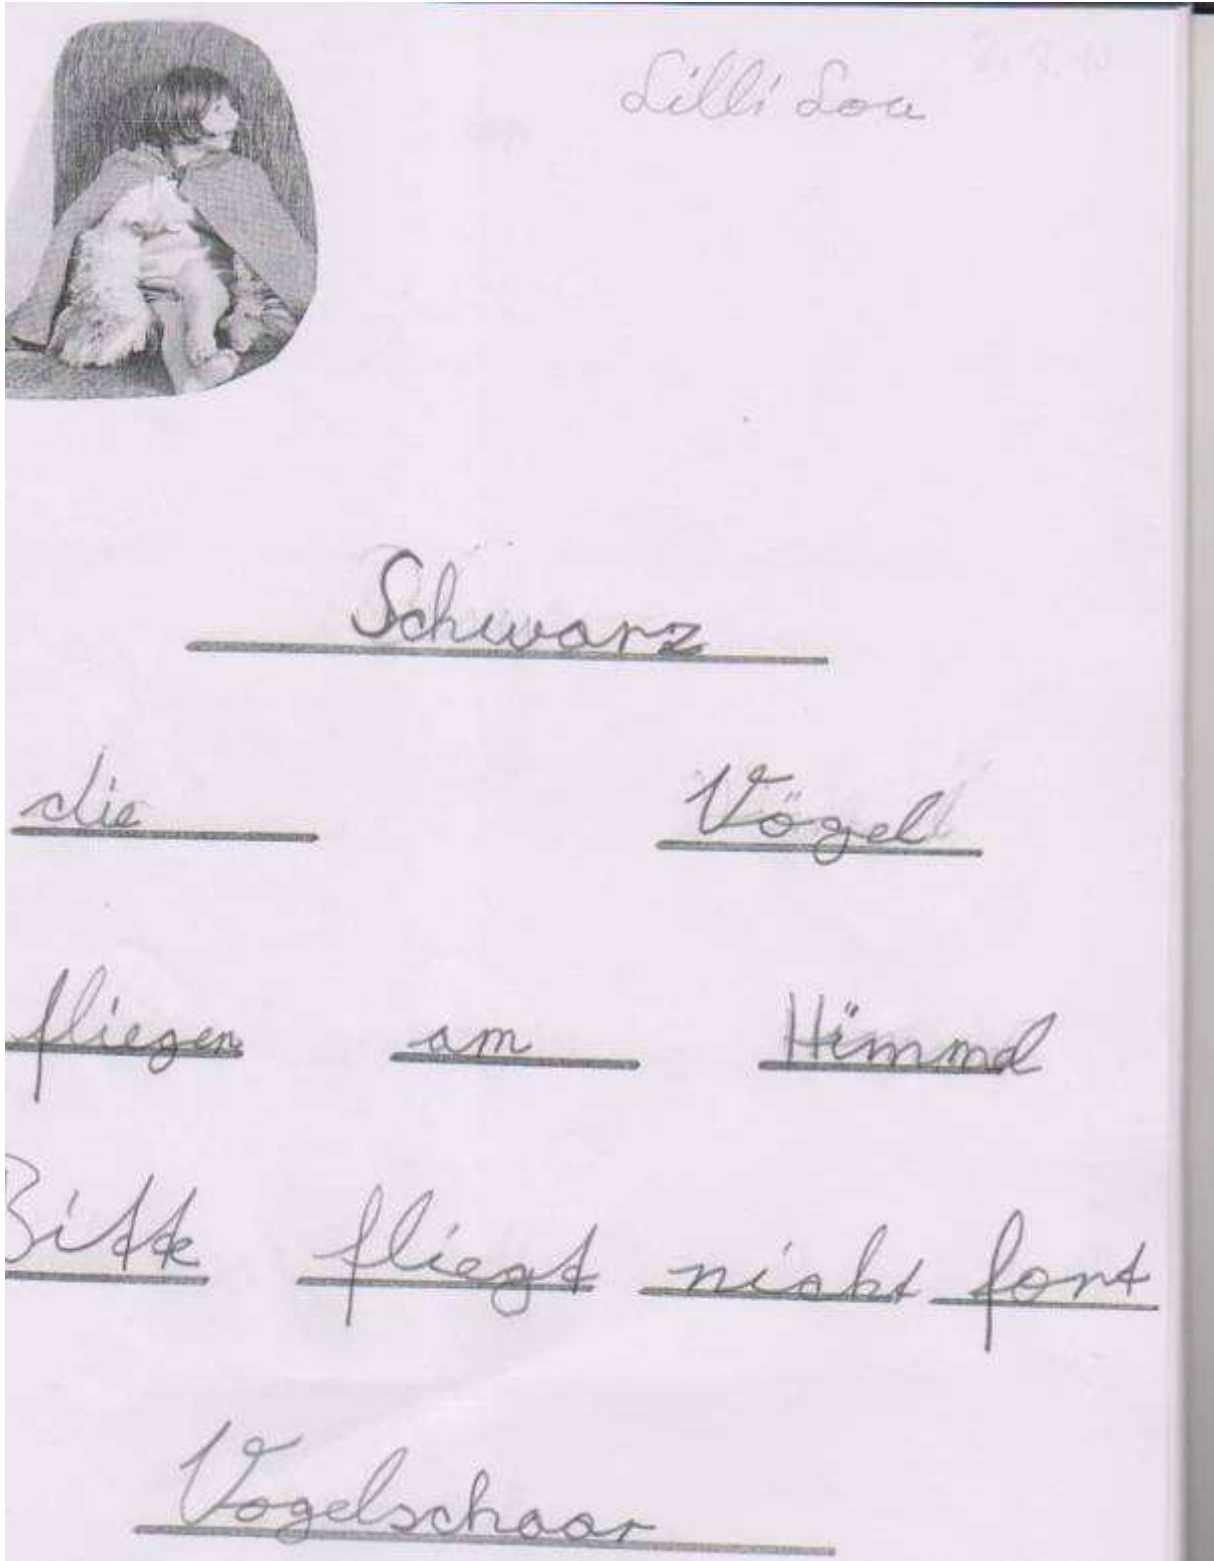 Lilli Lou
Schwarz
die Vögel
fliegen am Himmel
Bitte fliegt nicht fort
Vogelschaar